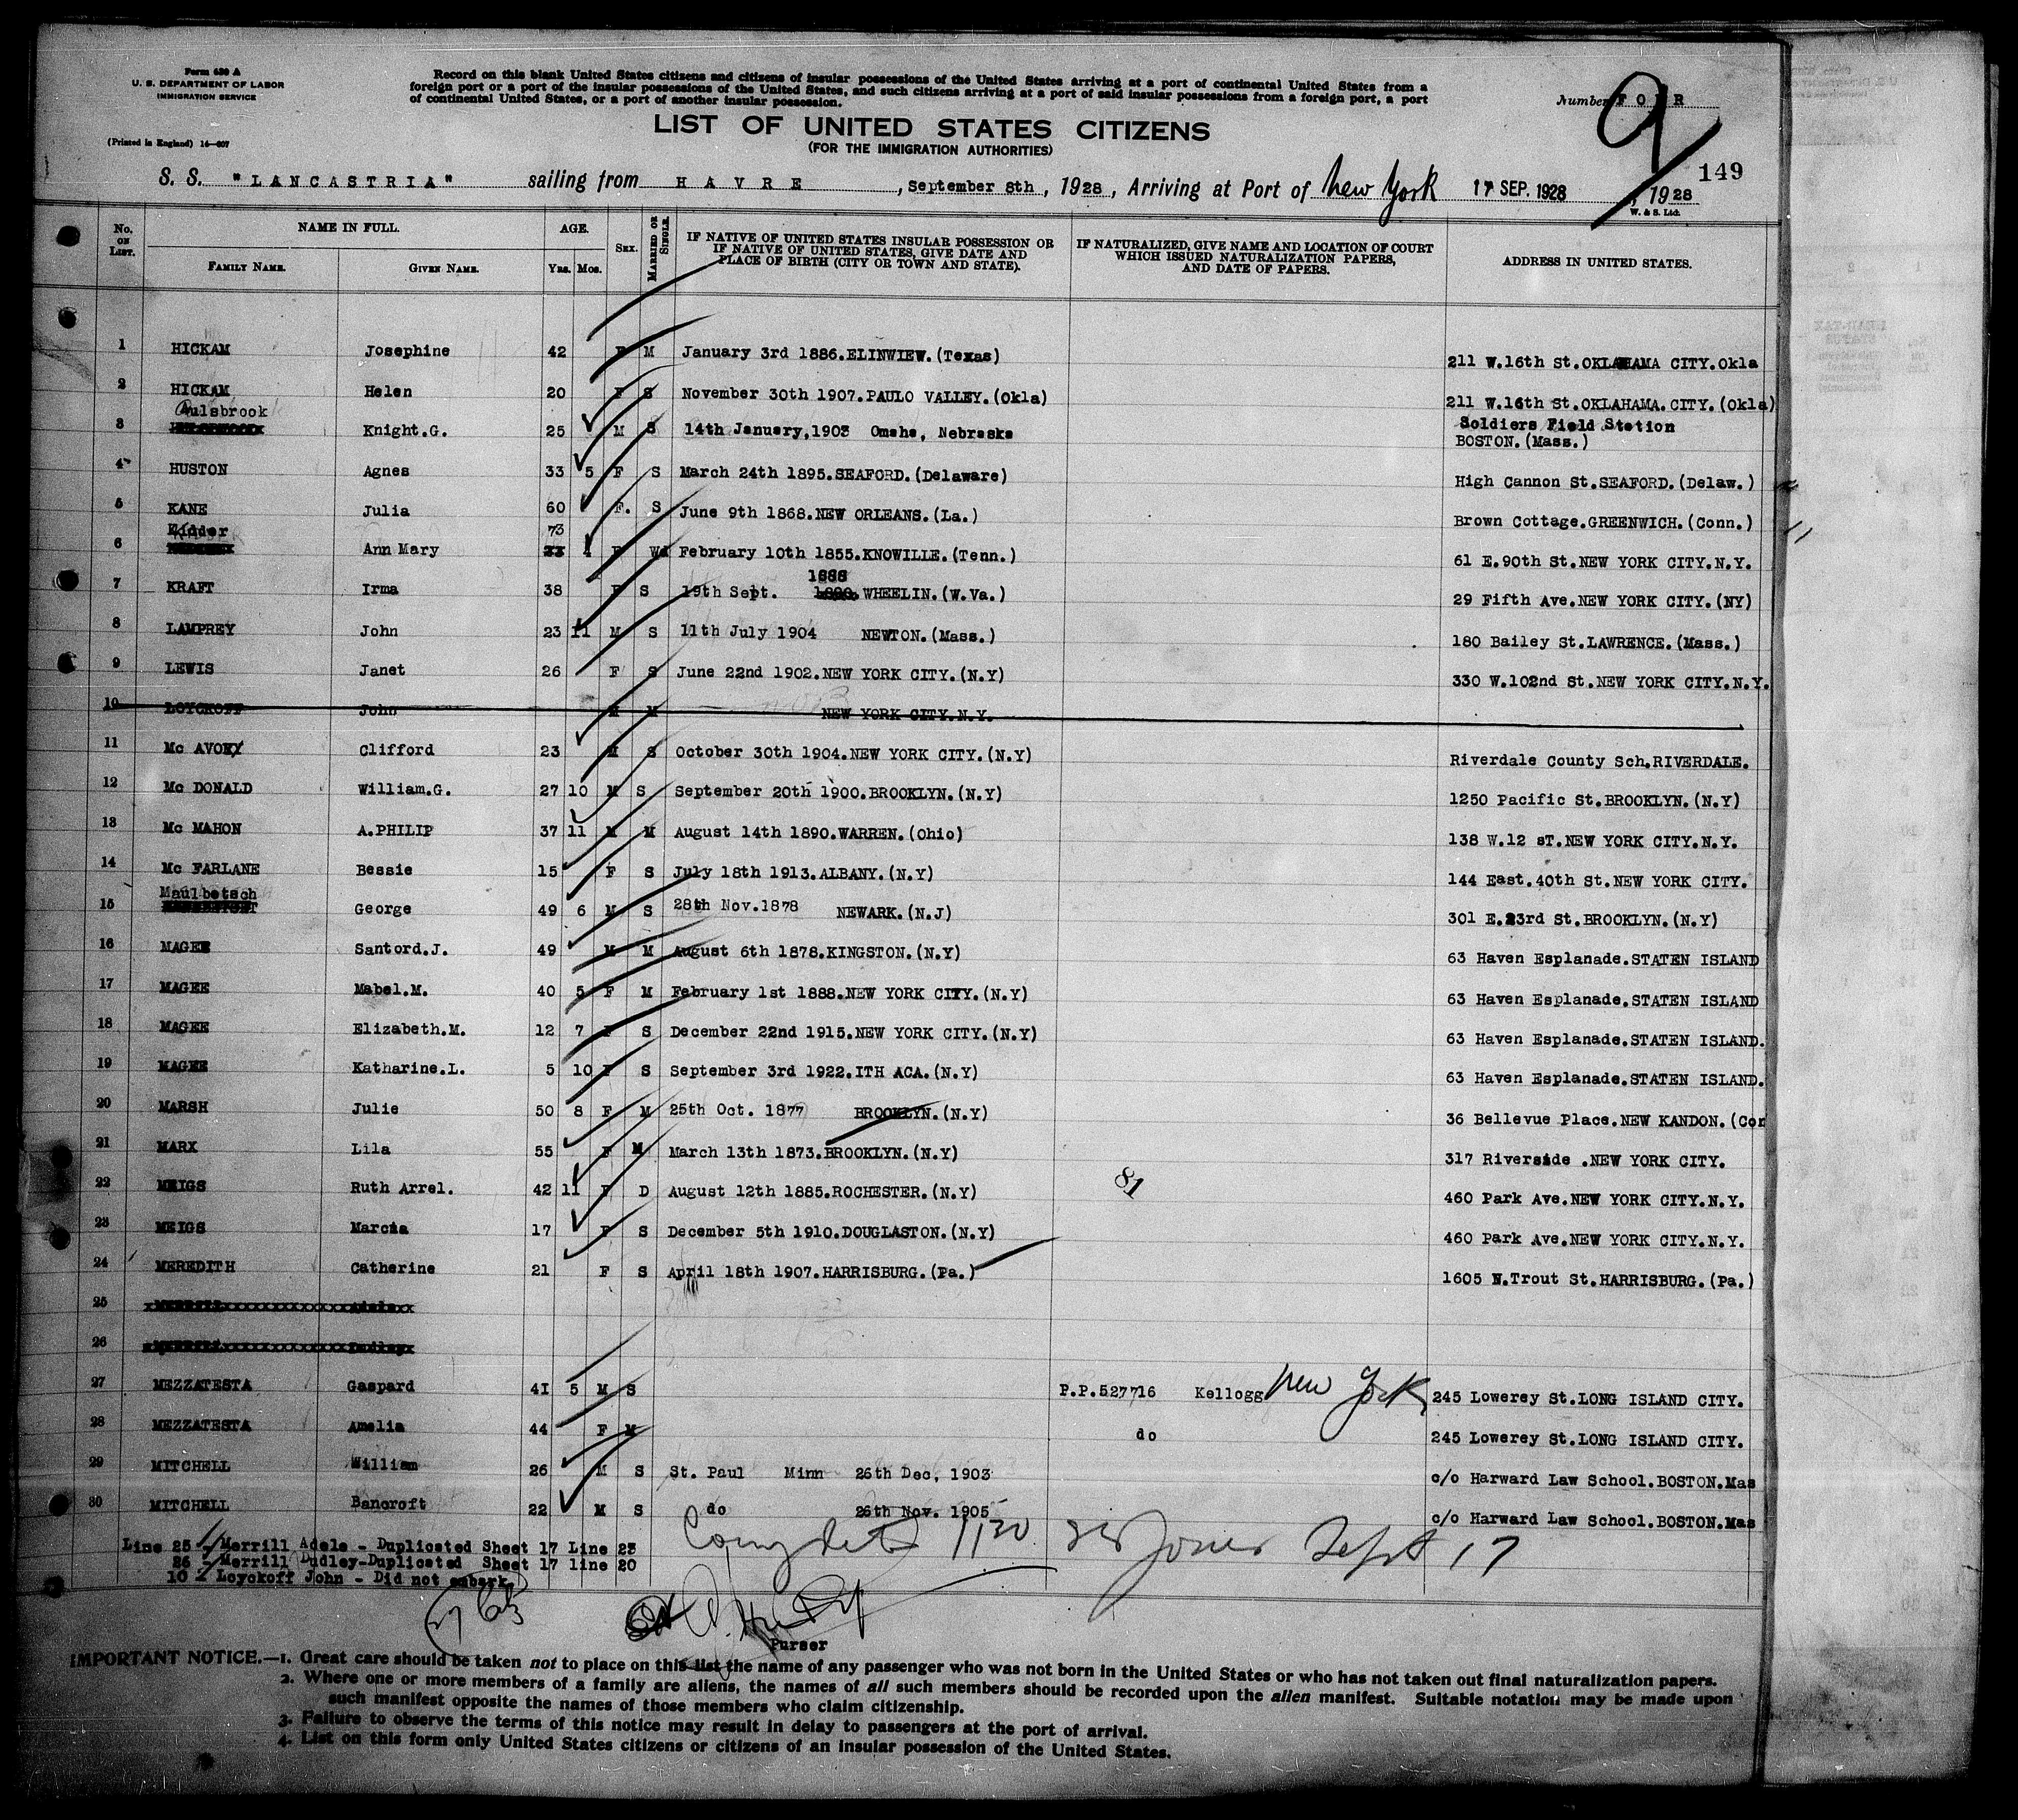 Form 630 A
U. S. DEPARTMENT OF LABOR
IMMIGRATION SERVICE
(Printed in England) 14—607
Record on this blank United States citizens and citizens of insular possessions of the United States arriving at a port of continental United States from a
foreign port or a port of the insular possessions of the United States, and such citizens arriving at a port of said insular possessions from a foreign port, a port
of continental United States, or a port of another insular possession.
Number
9
LIST OF UNITED STATES CITIZENS
(FOR THE IMMIGRATION AUTHORITIES)
149
S. S. "LANCASTRIA" sailing from HAVRE, September 8th, 1928, Arriving at Port of New York 17 SEP. 1928, 1928
W. & S. Ltd.
No. ON LIST. NAME IN FULL. AGE. SEX. MARRIED OR SINGLE. IF NATIVE OF UNITED STATES INSULAR POSSESSION OR IF NATIVE OF UNITED STATES, GIVE DATE AND PLACE OF BIRTH (CITY OR TOWN AND STATE). IF NATURALIZED, GIVE NAME AND LOCATION OF COURT WHICH ISSUED NATURALIZATION PAPERS, AND DATE OF PAPERS. ADDRESS IN UNITED STATES.
FAMILY NAME. GIVEN NAME. YRS. MOS.
1 HICKAM Josephine 42 F M January 3rd 1886.ELINWIEW.(Texas) 211 W.16th St.OKLAHAMA CITY.Okla
2 HICKAM Helen 20 F S November 30th 1907.PAULO VALLEY.(Okla) 211 W.16th St.OKLAHAMA.CITY.(Okla)
Aulsbrook
3 Knight.G. 25 M S 14th January,1903 Omaha, Nebraska Soldiers Field Station BOSTON.(Mass.)
4 HUSTON Agnes 33 5 F S March 24th 1895.SEAFORD.(Delaware) High Cannon St.SEAFORD.(Delaw.)
5 KANE Julia 60 F. S June 9th 1868.NEW ORLEANS.(La.) Brown Cottage.GREENWICH.(Conn.)
Kidder 73
6 Ann Mary F Wd February 10th 1855.KNOWILLE.(Tenn.) 61 E.90th St.NEW YORK CITY.N.Y.
7 KRAFT Irma 38 F S 19th Sept. 1888 WHEELIN.(W.Va.) 29 Fifth Ave.NEW YORK CITY.(NY)
8 LAMPREY John 23 11 M S 11th July 1904 NEWTON.(Mass.) 180 Bailey St.LAWRENCE.(Mass.)
9 LEWIS Janet 26 F S June 22nd 1902.NEW YORK CITY.(N.Y) 330 W.102nd St.NEW YORK CITY.N.Y.
10 LOYCKOFF John M M NEW YORK CITY.N.Y.
11 Mc AVOY Clifford 23 M S October 30th 1904.NEW YORK CITY.(N.Y) Riverdale County Sch.RIVERDALE.
12 Mc DONALD William.G. 27 10 M S September 20th 1900.BROOKLYN.(N.Y) 1250 Pacific St.BROOKLYN.(N.Y)
13 Mc MAHON A.PHILIP 37 11 M M August 14th 1890.WARREN.(Ohio) 138 W.12 sT.NEW YORK CITY.N.Y.
14 Mc FARLANE Bessie 15 F S July 18th 1913.ALBANY.(N.Y) 144 East.40th St.NEW YORK CITY.
Maulbetsch
15 George 49 6 M S 28th Nov.1878 NEWARK.(N.J) 301 E.23rd St.BROOKLYN.(N.Y)
16 MAGEE Santord.J. 49 M M August 6th 1878.KINGSTON.(N.Y) 63 Haven Esplanade.STATEN ISLAND
17 MAGEE Mabel.M. 40 5 F M February 1st 1888.NEW YORK CITY.(N.Y) 63 Haven Esplanade.STATEN ISLAND
18 MAGEE Elizabeth.M. 12 7 F S December 22nd 1915.NEW YORK CITY.(N.Y) 63 Haven Esplanade.STATEN ISLAND.
19 MAGEE Katharine.L. 5 10 F S September 3rd 1922.ITH ACA.(N.Y) 63 Haven Esplanade.STATEN ISLAND.
20 MARSH Julie 50 8 F M 25th Oct. 1877 BROOKLYN.(N.Y) 36 Bellevue Place.NEW KANDON.(Con
21 MARX Lila 55 F M March 13th 1873.BROOKLYN.(N.Y) 317 Riverside .NEW YORK CITY.
22 MEIGS Ruth Arrel. 42 11 F D August 12th 1885.ROCHESTER.(N.Y) 81 460 Park Ave.NEW YORK CITY.N.Y.
23 MEIGS Marcia 17 F S December 5th 1910.DOUGLASTON.(N.Y) 460 Park Ave.NEW YORK CITY.N.Y.
24 MEREDITH Catherine 21 F S April 18th 1907.HARRISBURG.(Pa.) 1605 N.Trout St.HARRISBURG.(Pa.)
25
26
27 MEZZATESTA Gaspard 41 5 M S P.P.527716 Kellogg New York 245 Lowerey St.LONG ISLAND CITY.
28 MEZZATESTA Amelia 44 F M do 245 Lowerey St.LONG ISLAND CITY.
29 MITCHELL William 26 M S St. Paul Minn 26th Dec, 1903 c/o Harward Law School.BOSTON.Mas
30 MITCHELL Bancroft 22 M S do 26th Nov. 1905 c/o Harward Law School.BOSTON.Mas
Line 25 Merrill Adele - Duplicated Sheet 17 Line 23
26 Merrill Dudley-Duplicated Sheet 17 line 20
10 Loyckoff John - Did not embark
1130 Jones Sept 17
Purser
IMPORTANT NOTICE.—1. Great care should be taken not to place on this list the name of any passenger who was not born in the United States or who has not taken out final naturalization papers.
2. Where one or more members of a family are aliens, the names of all such members should be recorded upon the alien manifest. Suitable notation may be made upon
such manifest opposite the names of those members who claim citizenship.
3. Failure to observe the terms of this notice may result in delay to passengers at the port of arrival.
4. List on this form only United States citizens or citizens of an insular possession of the United States.